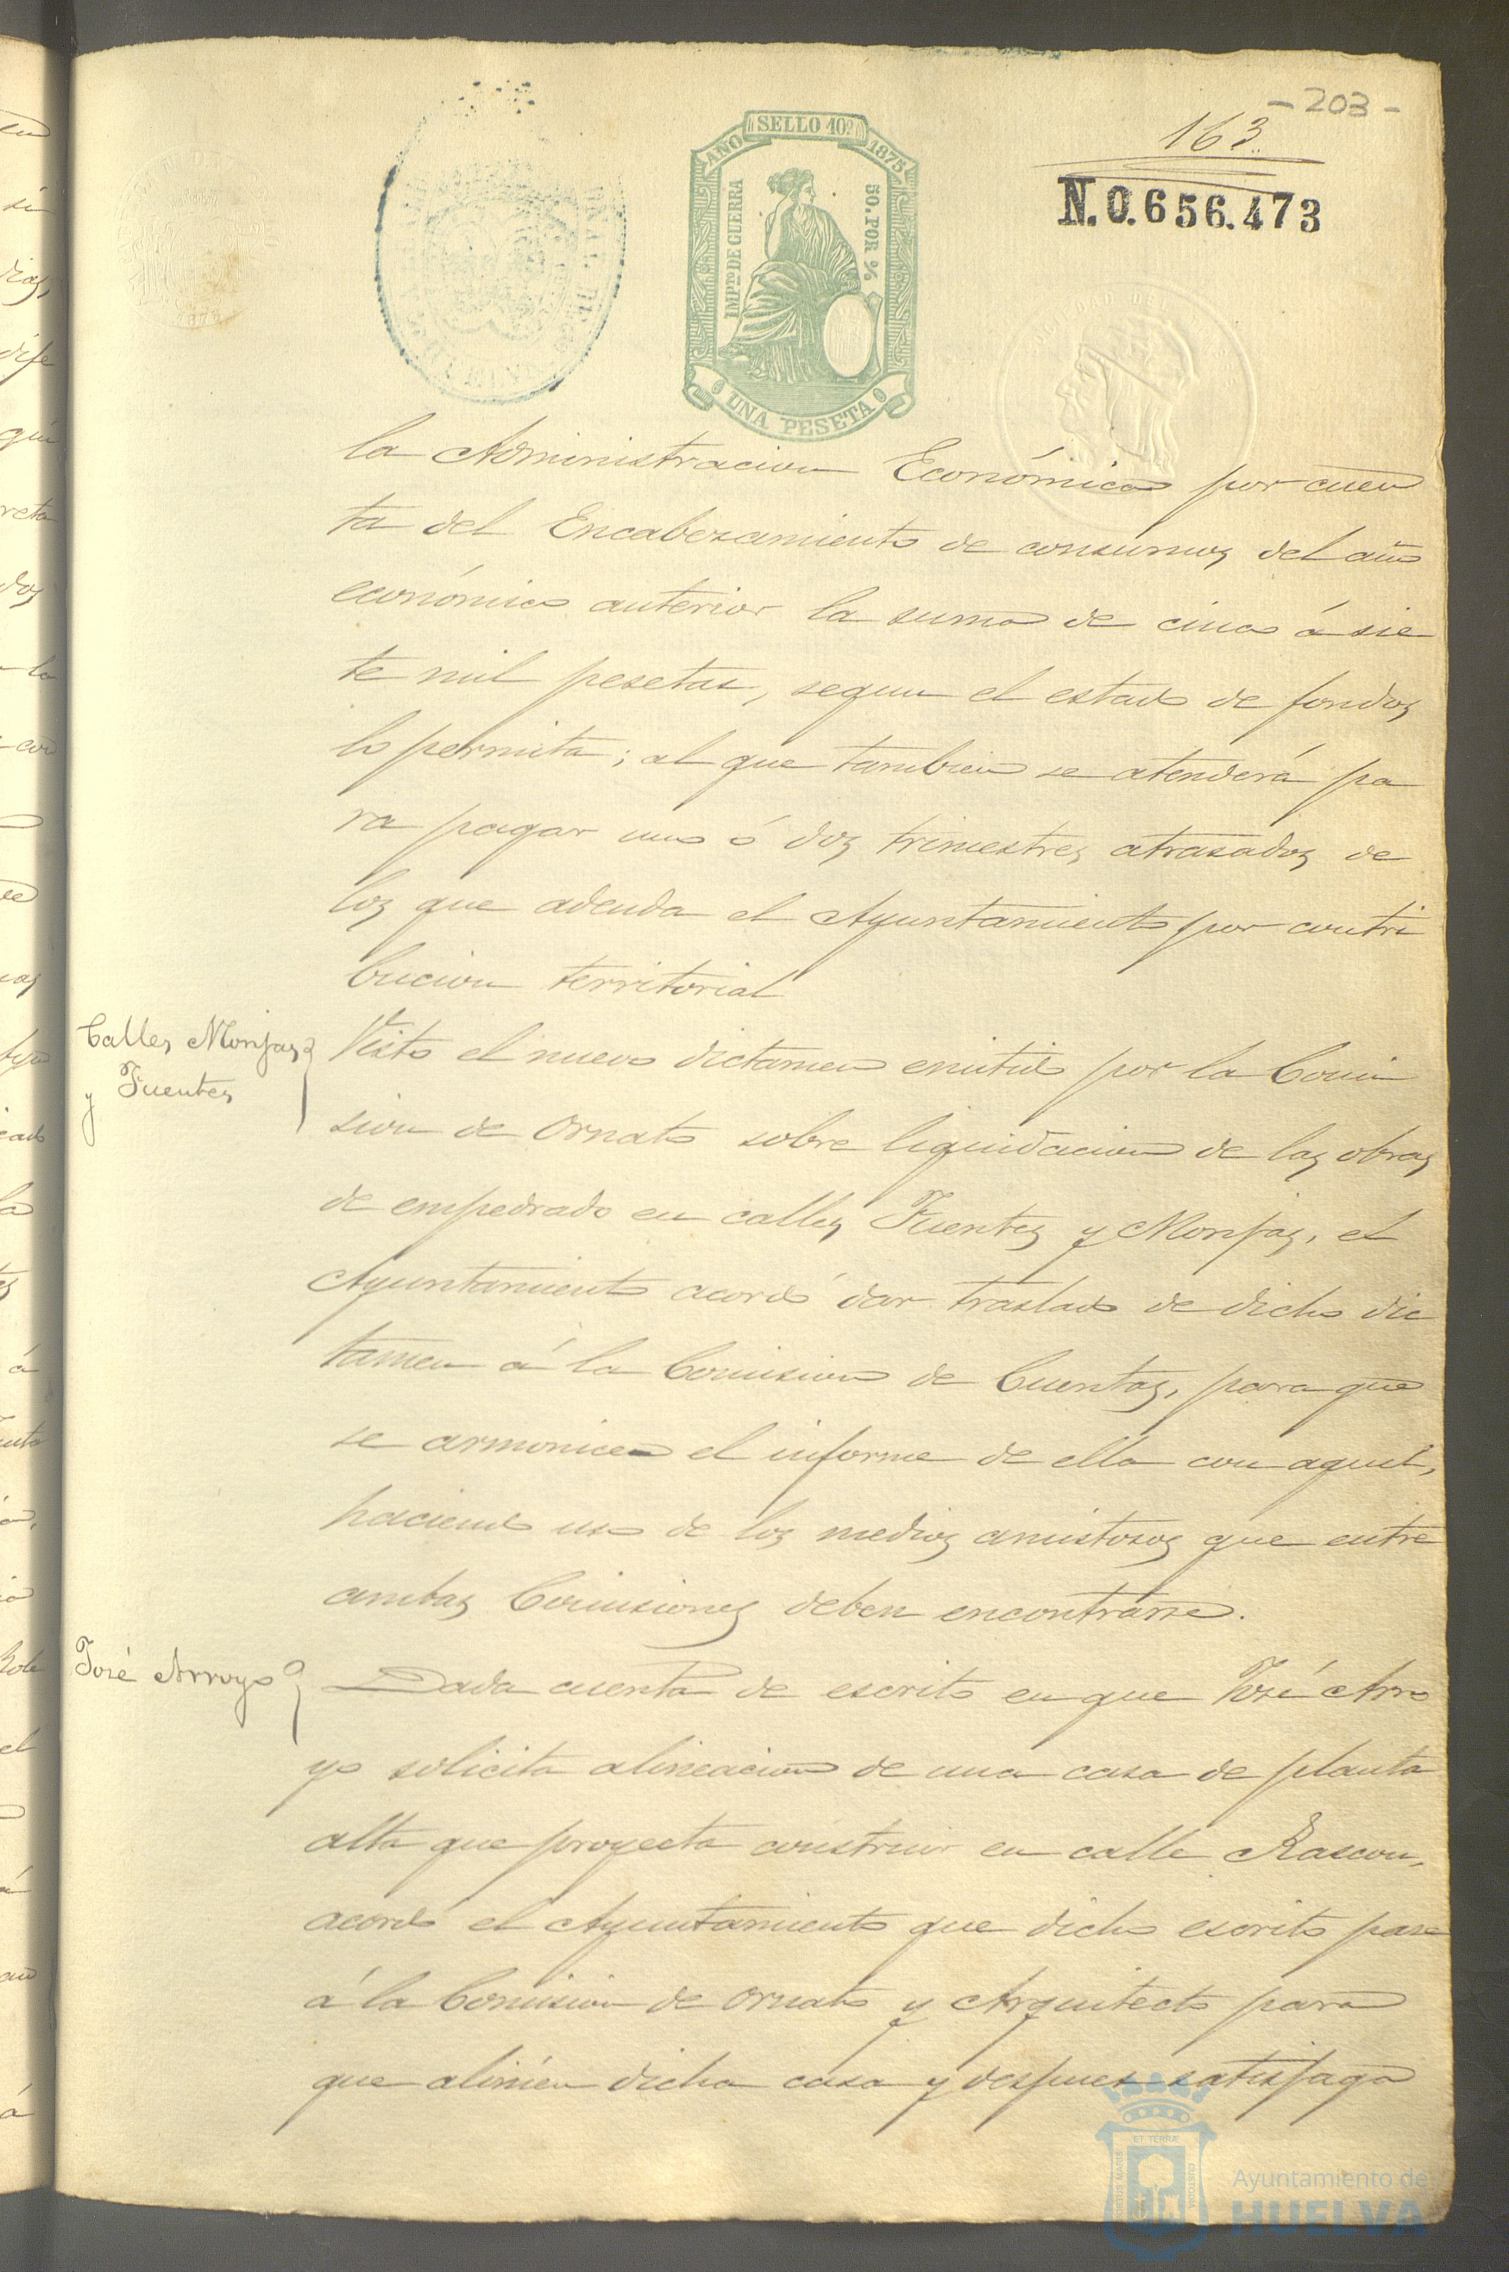 - 203 -
163.
AÑO SELLO 10º 1875
IMPTO DE GUERRA
50. POR %
UNA PESETA
N. 0.656.473
la Administracion Económica por cuen
ta del Encabezamiento de consumos del año
económico anterior la suma de cinco á sie
te mil pesetas, segun el estado de fondos
lo permita; al que tambien se atenderá pa
ra pagar uno ó dos trimestres atrasados de
los que adeuda el Ayuntamiento por contri
bucion territorial
Calles Monjas
y Fuentes
Visto el nuevo dictamen emitido por la Comi
sion de Ornato sobre liquidacion de las obras
de empedrado en calles Fuentes y Monjas, el
Ayuntamiento acordó dar traslado de dicho dic
tamen á la Comision de Cuentas, para que
se armonice el informe de ella con aquel,
haciendo uso de los medios amistosos que entre
ambas Comisiones deben encontrarse.
José Arroyo
Dada cuenta de escrito en que José Arro
yo solicita alineacion de una casa de planta
alta que proyecta construir en calle Rascon,
acordó el Ayuntamiento que dicho escrito pase
á la Comision de Ornato y Arquitecto para
que alinéen dicha casa y despues satisfaga
Ayuntamiento de
HUELVA